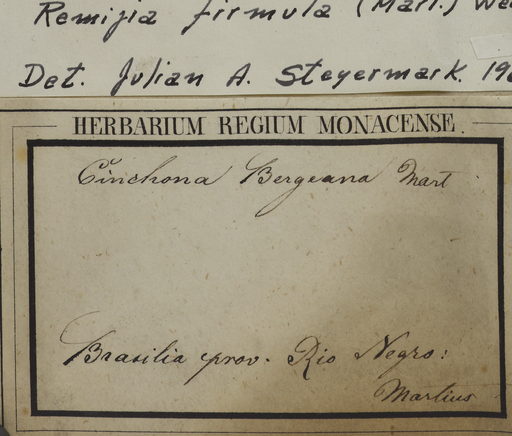 Remijia firmula (Mart.) We
Det. Julian A. Steyermark 19
HERBARIUM REGIUM MONACENSE.
Cinchona Bergeana Mart
Brasilia prov. Rio Negro:
Martius